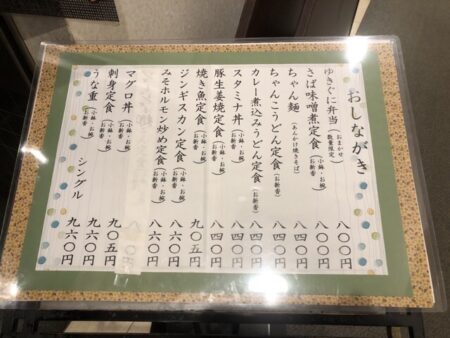 おしながき
ゆきぐに弁当（おまかせ 数量限定） 八〇〇円
さば味噌煮定食（小鉢・お椀 お新香） 八〇〇円
ちゃん麺（あんかけ焼きそば） 八〇〇円
ちゃんこうどん定食（お新香） 八四〇円
カレー煮込みうどん定食（お新香） 八四〇円
スタミナ丼（小鉢・お椀 お新香） 八四〇円
豚生姜焼定食（小鉢・お椀 お新香） 八四〇円
焼き魚定食（小鉢・お椀 お新香） 九〇五円
ジンギスカン定食（小鉢・お椀 お新香） 八六〇円
みそホルモン炒め定食（小鉢・お椀 お新香） 八六〇円
マグロ丼（小鉢・お椀 お新香） 九〇五円
刺身定食（小鉢・お椀 お新香） 九六〇円
うな重（小鉢・お椀 お新香） シングル 九六〇円